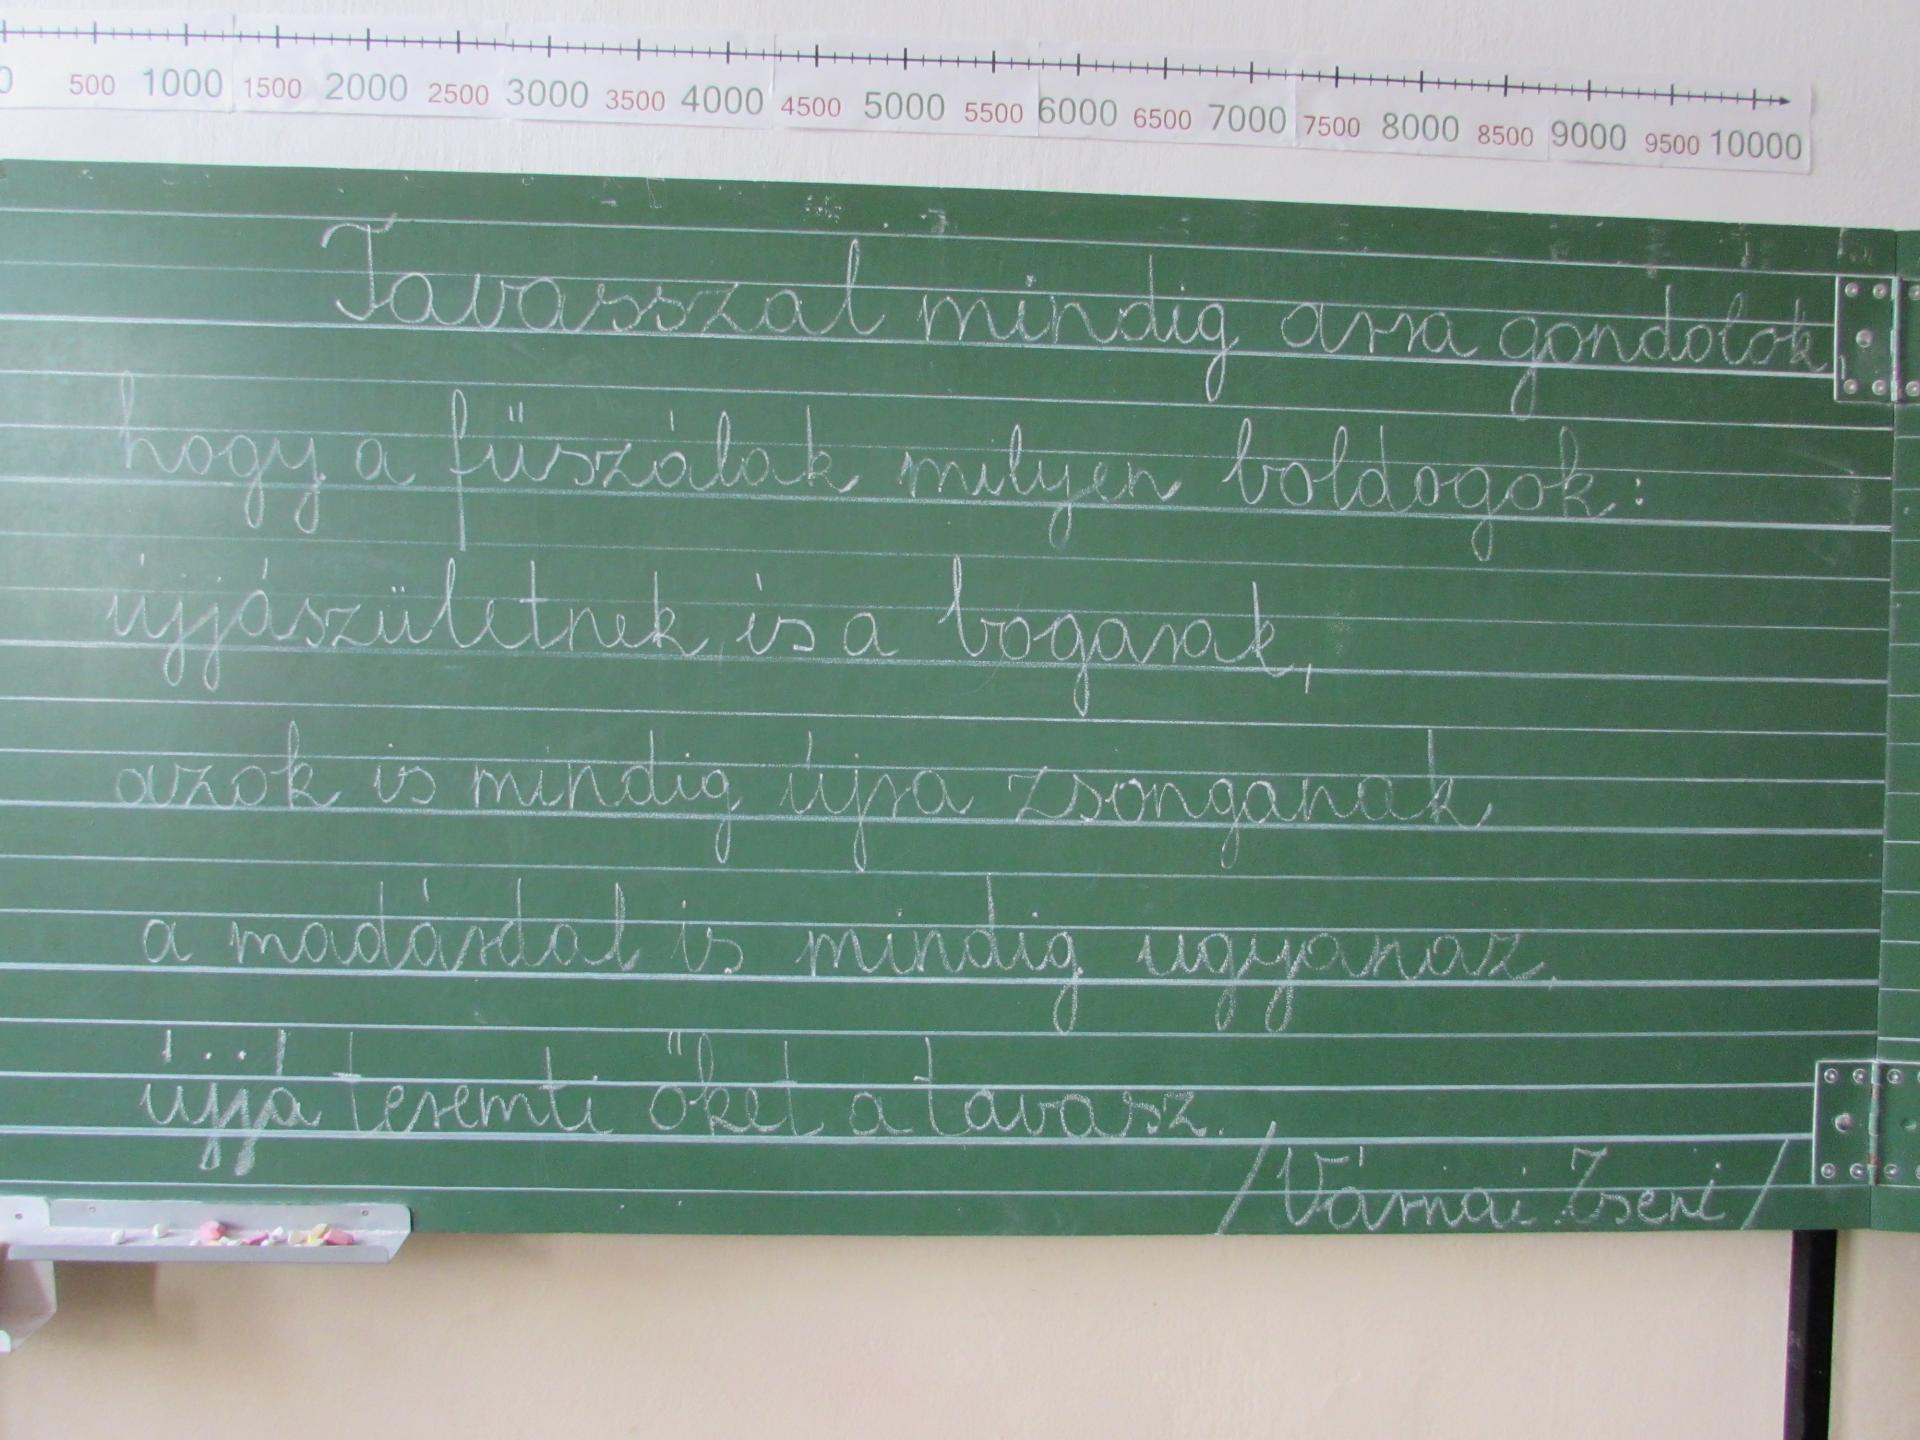 0 500 1000 1500 2000 2500 3000 3500 4000 4500 5000 5500 6000 6500 7000 7500 8000 8500 9000 9500 10000
Tavasszal mindig arra gondolok
hogy a fűszálak milyen boldogok:
újjászületnek, és a bogarak,
azok is mindig újra zsonganak
a madárdal is mindig ugyanaz,
újjá teremti őket a tavasz.
/Várnai Zseni/